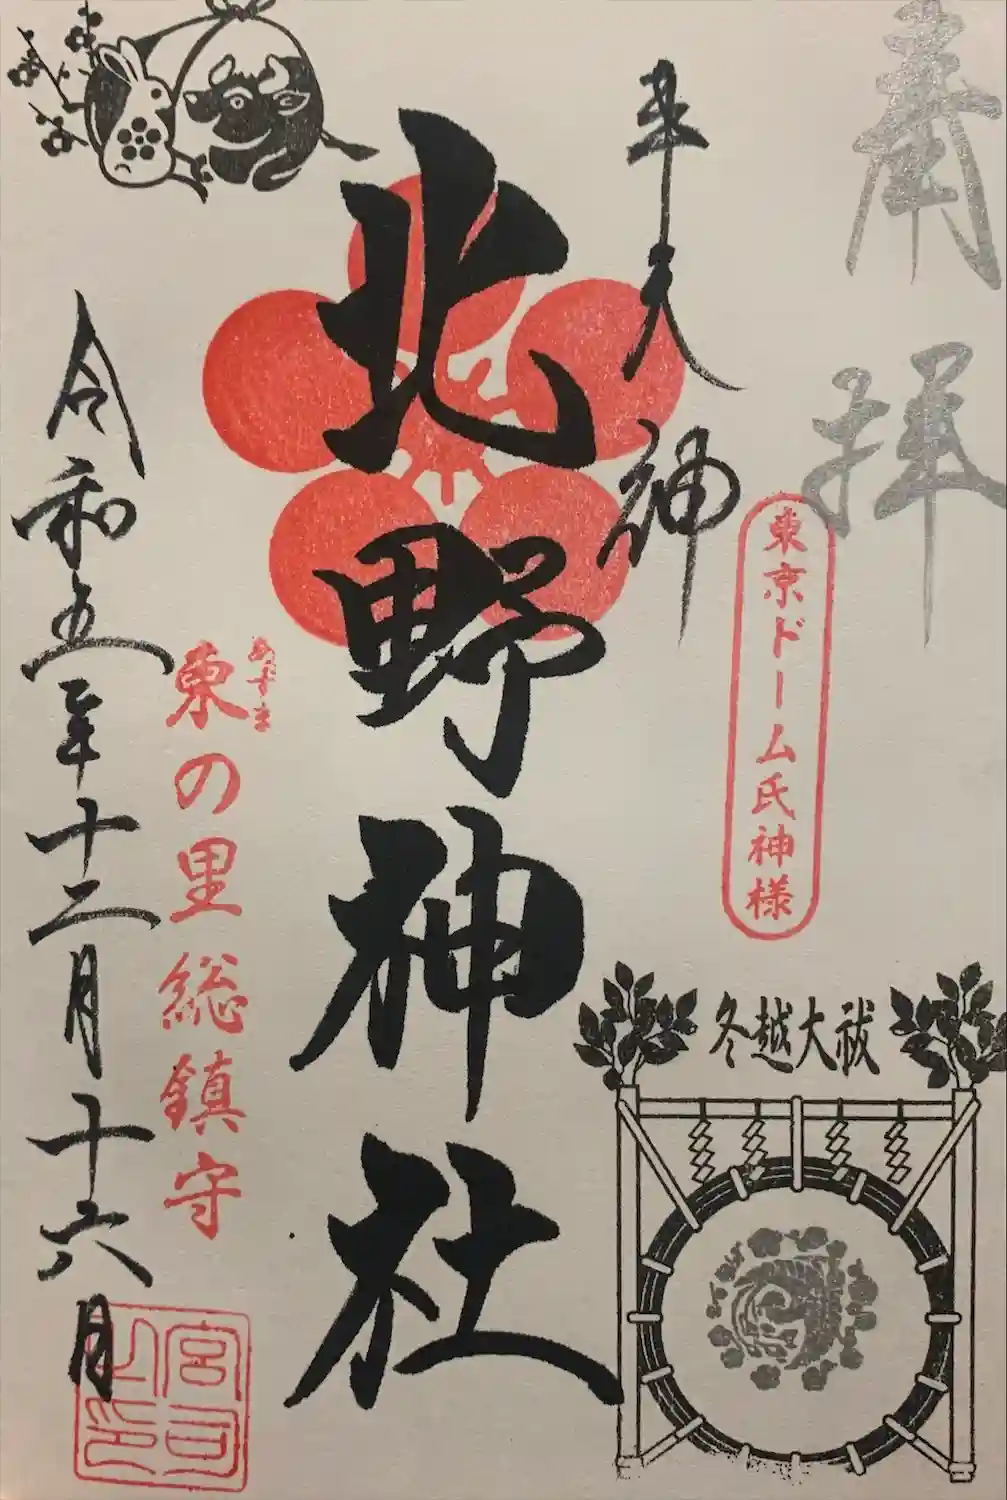 奉拝
牛天神
東京ドーム氏神様
冬越大祓
北野神社
あずま
東の里総鎮守
令和五年十二月十六日
宮司之印